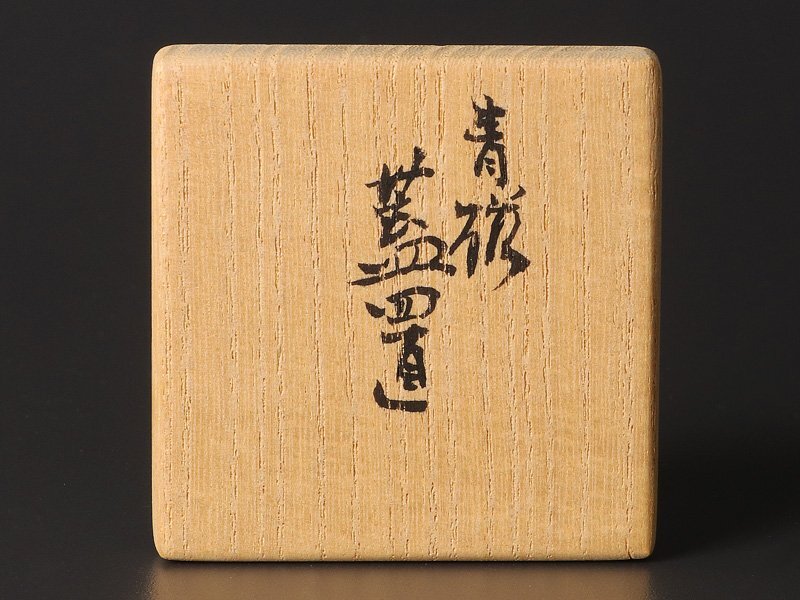 青磁
蓋置